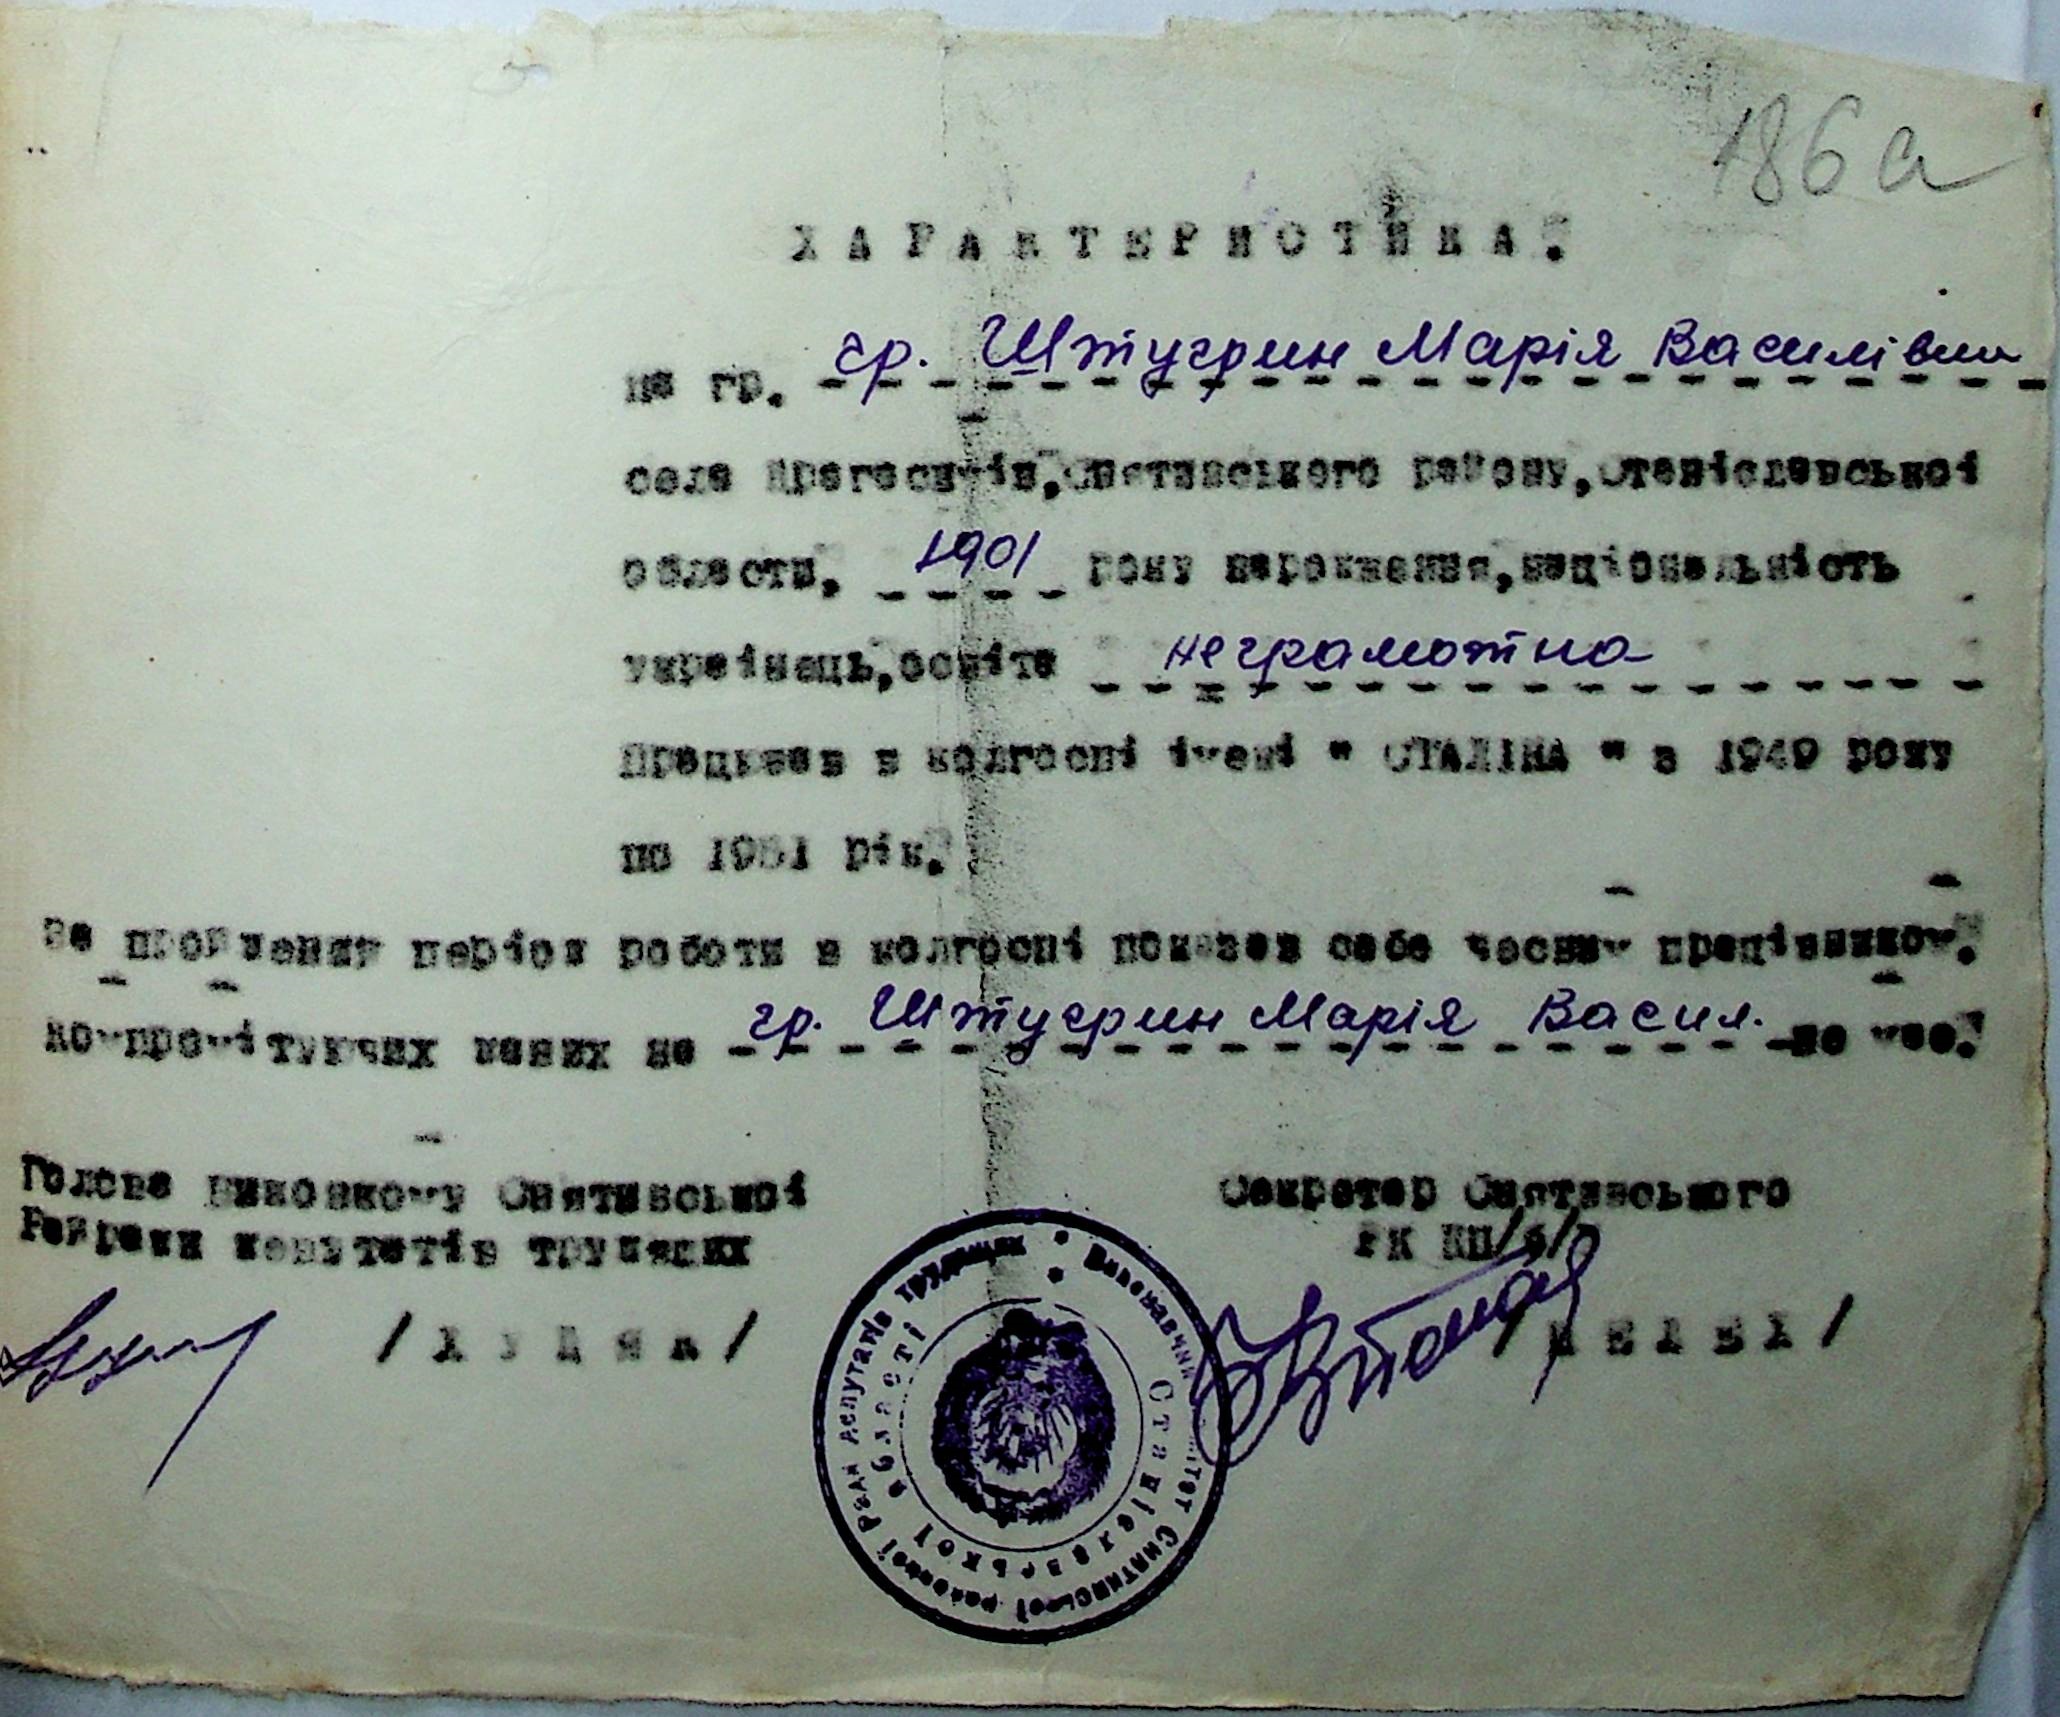 186 а
ХАРАКТЕРИСТИКА.
на гр. гр. Штугрин Марія Василівни
села Драгасимів, Снятинського району, Станіславської
області, 1901 року народження, національність
українець, освіта неграмотна
Працював в колгоспі імені " СТАЛІНА " з 1949 року
по 1951 рік.
За проблений період роботи в колгоспі показав себе чесним працівником.
компромітуючих даних на гр. Штугрин Марія Васил. не має.
Голова виконкому Снятинської
Райради депутатів трудящих
Секретар Снятинського
РК КП/б/У
Виконавчий комітет Снятинської районної Ради депутатів трудящих
Станіславської області